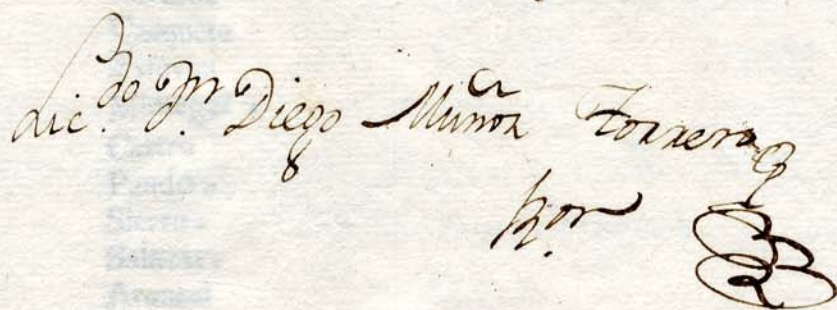 Lic.do D.n Diego Muñoz Torrero
R.or